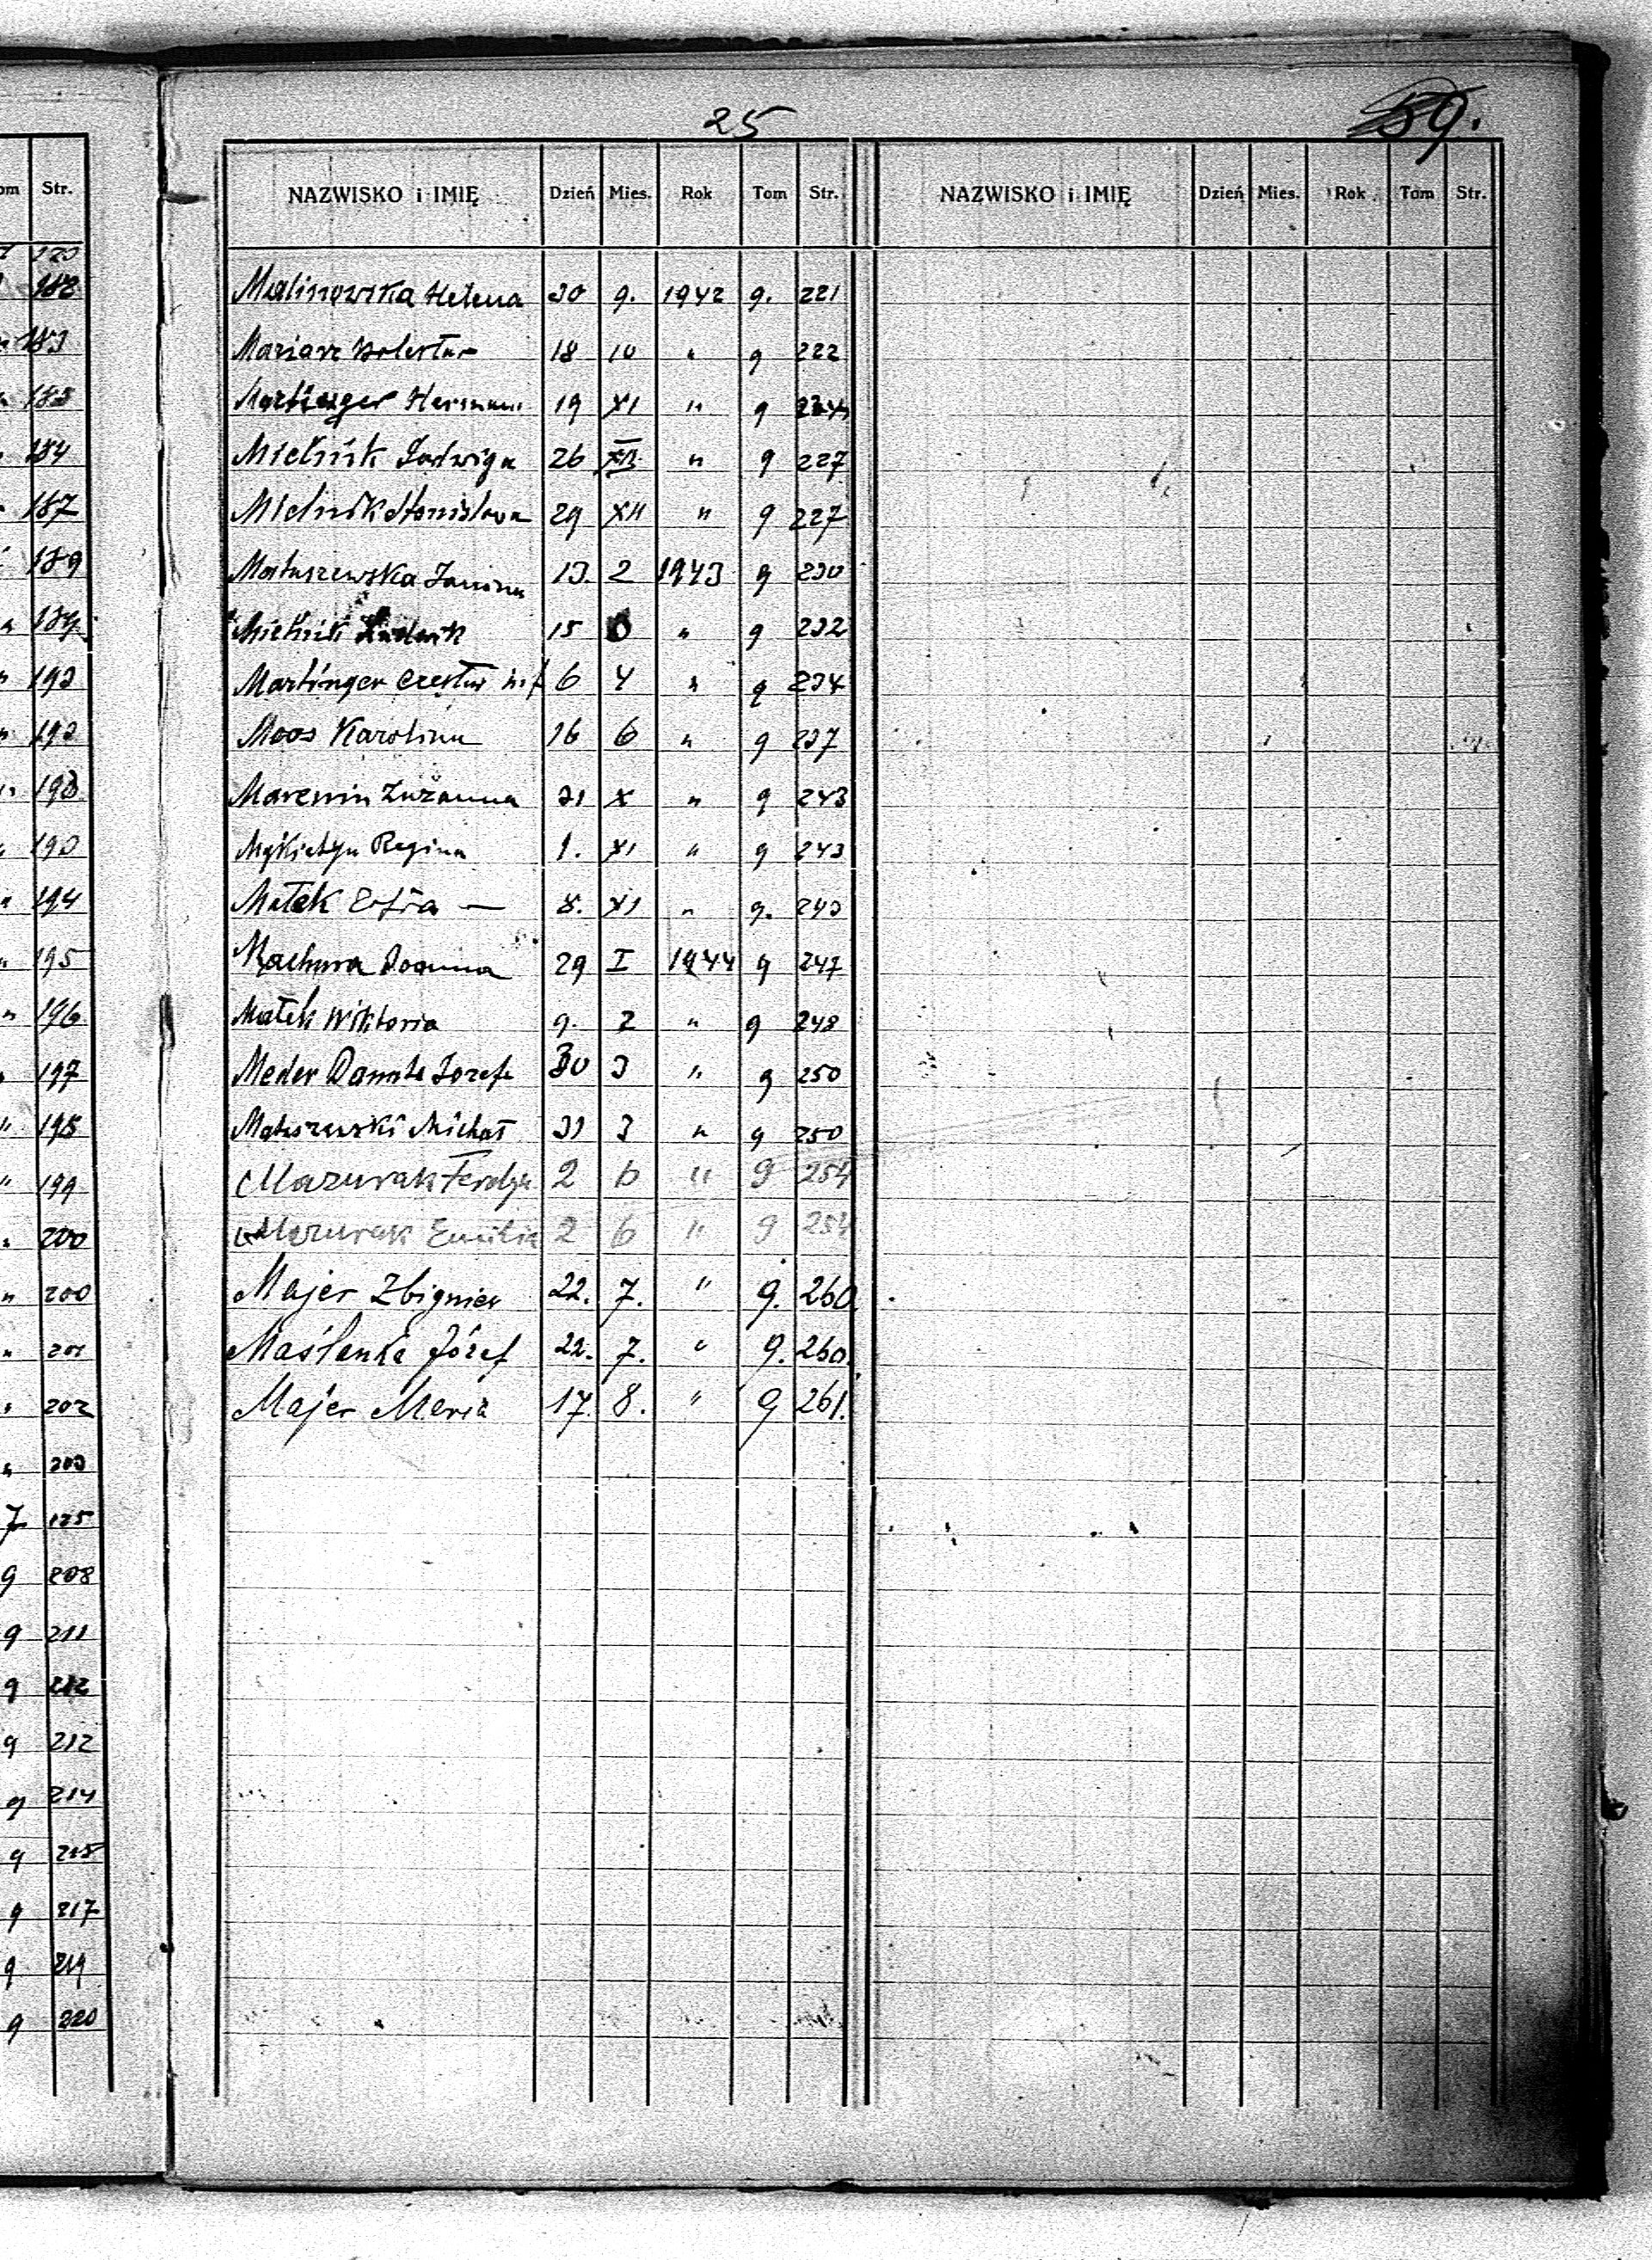 25
59.
om Str.
NAZWISKO i IMIĘ Dzień Mies. Rok Tom Str. NAZWISKO i IMIĘ Dzień Mies. Rok Tom Str.
182
183
183
184
187
189
189
193
193
193
193
194
195
196
197
198
" 199
200
" 200
" 201
202
203
7 125
9 208
9 211
9 212
9 212
9 214
9 215
9 217
9 219
9 220
Malinowska Helena 30 9. 1942 9. 221
18 10 " 9 222
Hermann 19 XI " 9
Mielnik Jadwiga 26 XII " 9 227
Mielnik Stanisława 29 XII " 9 227
Matuszewska Janina 13. 2 1943 9 230
Mielnik Ludwik 15 " 9 232
Martinger Czesław 6 4 " 9 234
Moos Karolina 16 6 " 9 237
Marcinin Zuzanna 31 X " 9 243
Mykietyn Regina 1. XI " 9 243
Małek Zofia — 8. XI " 9. 243
Machura Joanna 29 I 1944 9 247
Małek Wiktoria 9. 2 " 9 248
Meder Danuta Józefa 30 3 " 9 250
Matuszewski Michał 31 3 " 9 250
Mazurak 2 6 " 9 254
Mazurak Emilia 2 6 " 9 254
Majer Zbigniew 22. 7. " 9. 260.
Maślanka Józef 22. 7. " 9. 260.
Majer Maria 17. 8. " 9 261.